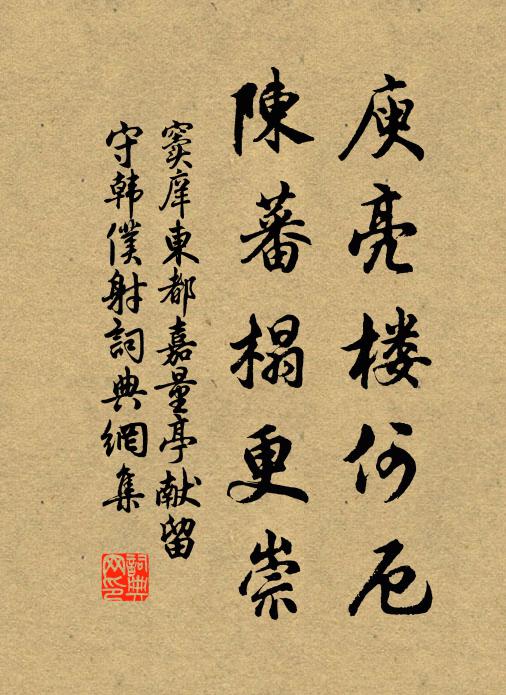 庾亮楼何厄
陳蕃榻更崇
窦庠東都嘉量亭献留
守韩僕射詞典網集
詞典
网印